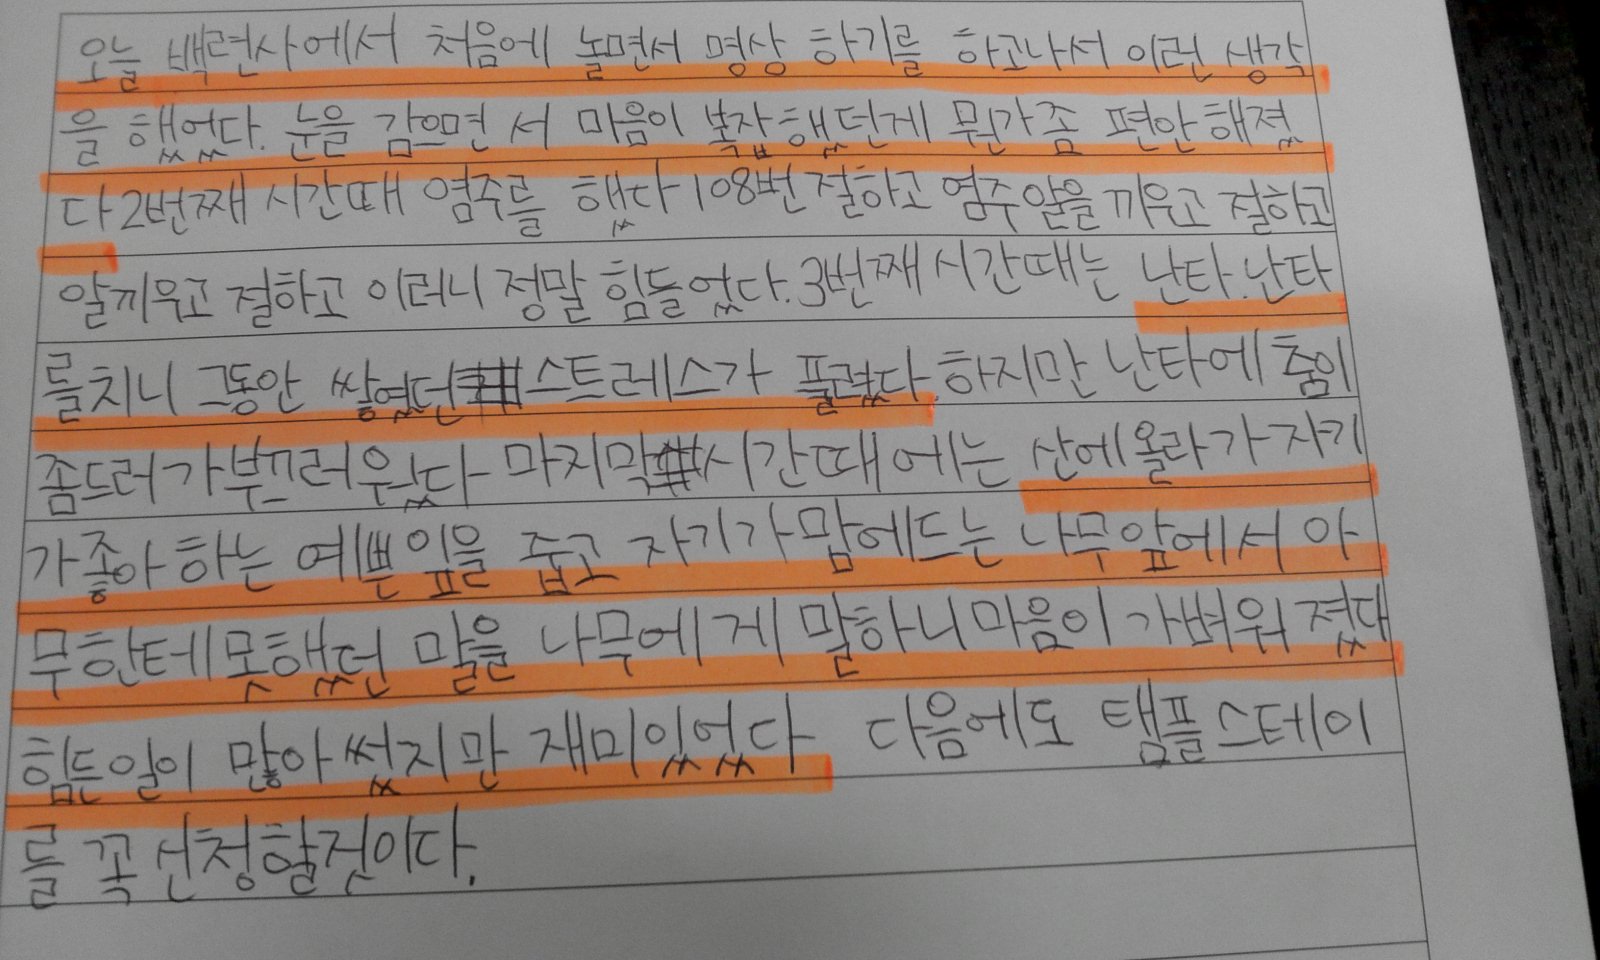 오늘 백련사에서 처음에 놀면서 명상 하기를 하고나서 이런 생각
을 했었다. 눈을 감으면 서 마음이 복잡했던게 뭔가좀 편안해졌
다 2번째 시간때 염주를 했다 108번 절하고 염주알을 끼우고 절하고
알끼우고 절하고 이러니 정말 힘들었다. 3번째 시간때는 난타. 난타
를치니 그동안 쌓였던 스트레스가 풀렸다. 하지만 난타에 춤이
좀드러가부끄러우웠다 마지막 시간때에는 산에올라가 자기
가좋아하는 예쁜잎을 줍고 자기가맘에드는 나무앞에서 아
무한테못했던 말을 나무에게 말하니마음이 가벼워 졌다
힘든일이 많아썼지만 재미있었다 다음에도 탬플스테이
를 꼭신청할껀이다.